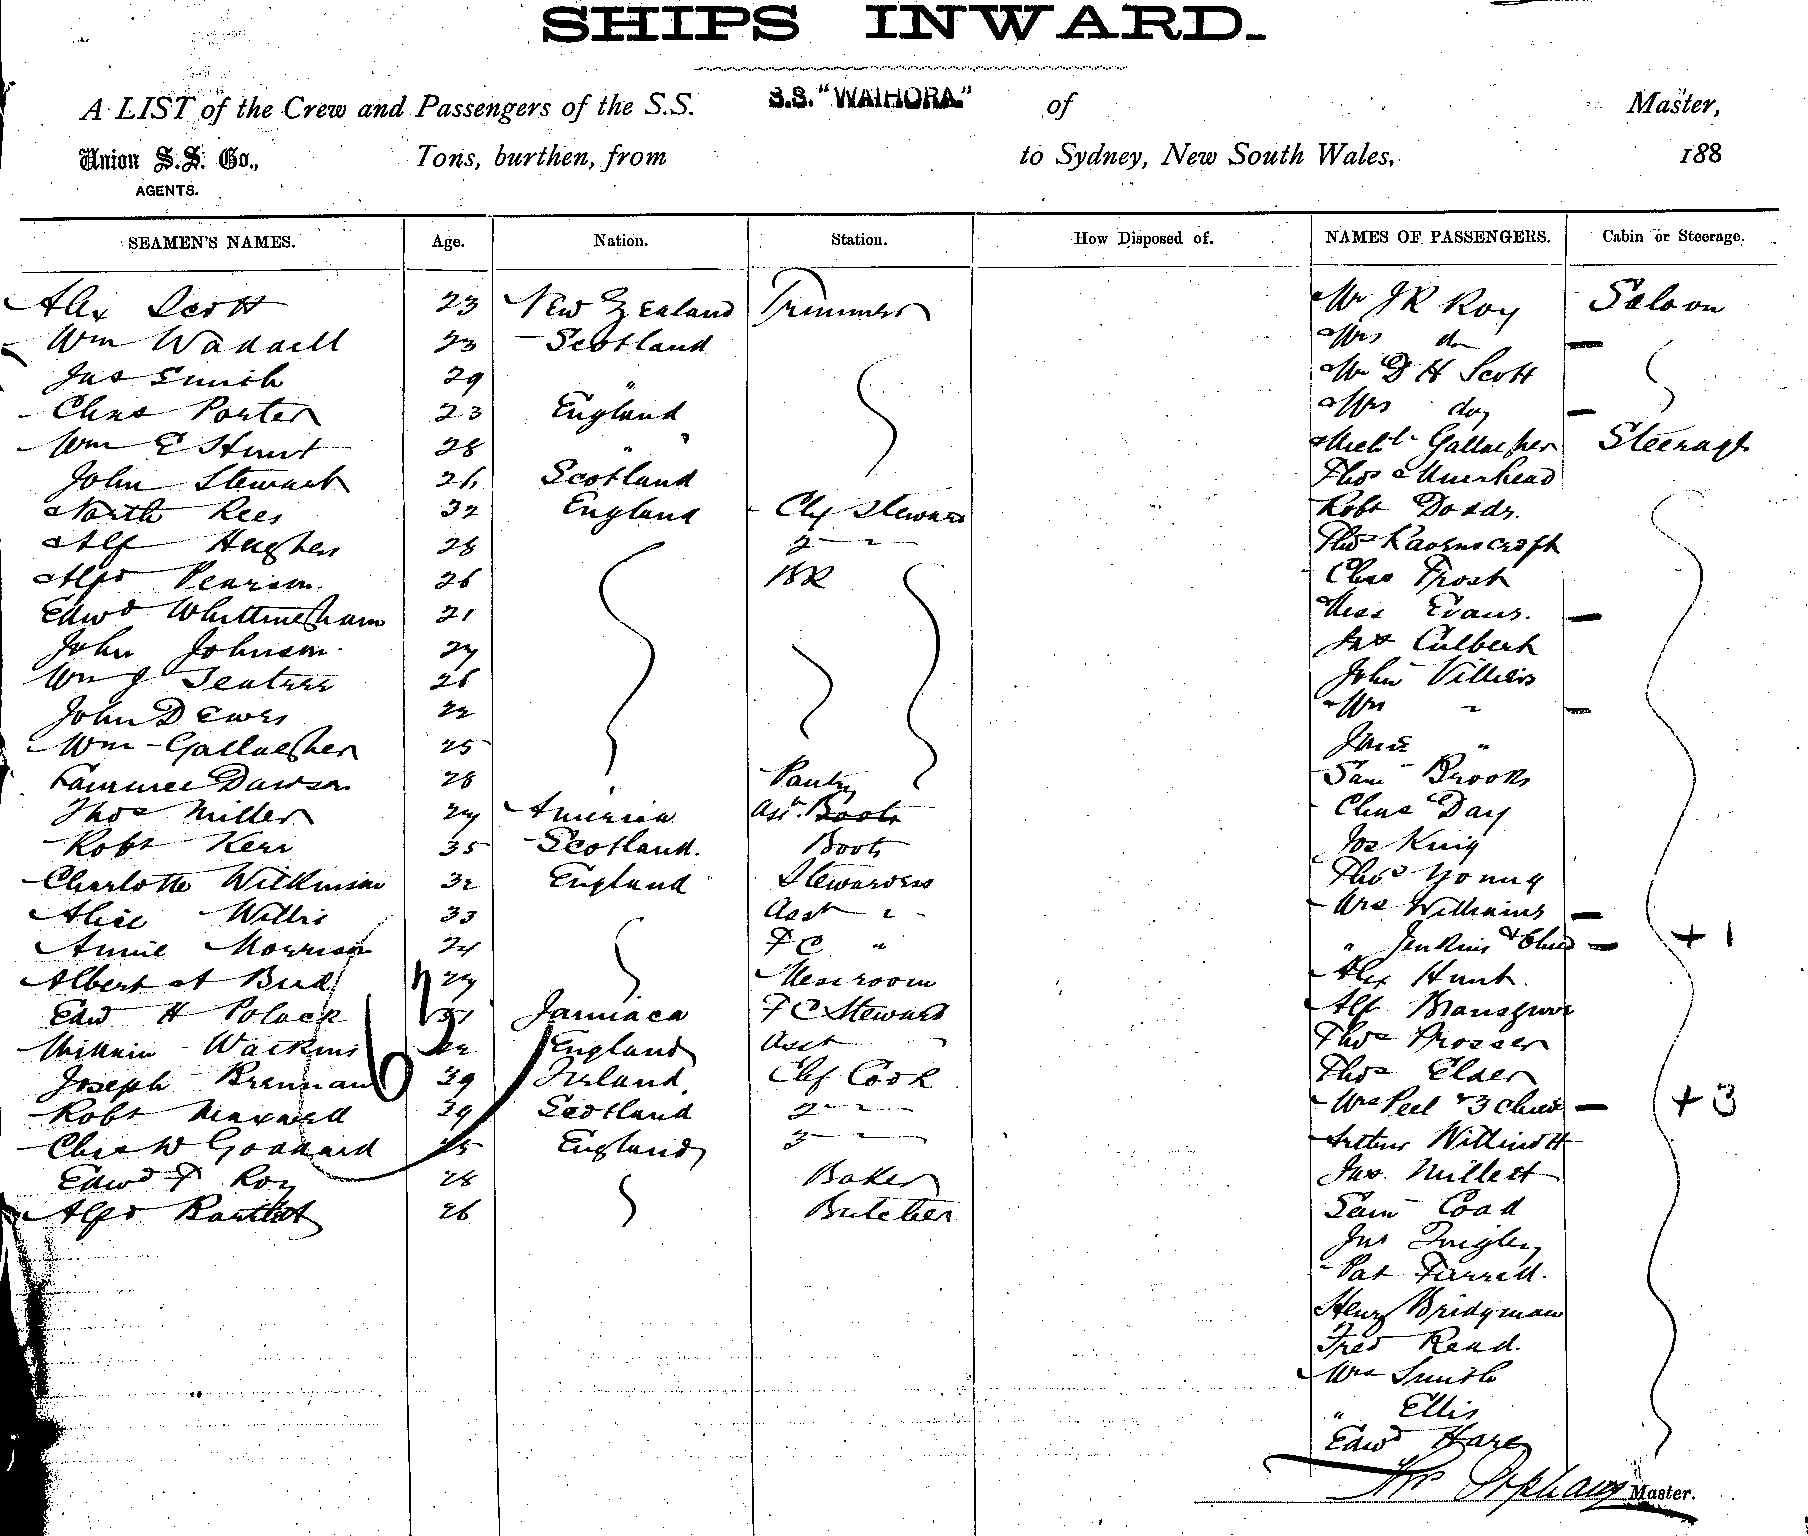 SHIPS INWARD.
A LIST of the Crew and Passengers of the S.S. S.S. "WAIHORA" of Master,
Union S.S. Co., Tons, burthen, from to Sydney, New South Wales, 188
AGENTS.
SEAMEN'S NAMES. Age. Nation. Station. How Disposed of. NAMES OF PASSENGERS. Cabin or Steerage.
Alex Scott 23 New Zealand Trimmer Mr J R Roy Saloon
Wm Waddell 23 Scotland Mrs do
Jas Smith 29 " Mr D H Scott
Chas Porter 23 England Mrs do
Wm E Hunt 28 " " Gallagher Steerage
John Stewart 26 Scotland Thos Muirhead
North Rees 32 England Chf Steward Robt Dodds.
Alf Hughes 28 2 " Thos Ravenscroft
Alfd Pearson 26 Chas Frost
Edwd Whittingham 21 Miss Evans.
John Johnson 27 Culbert
Wm J 26 John Villiers
John Dewes 22 Mrs "
Wm Gallagher 25 Jane "
Laurence Dawson 28 Pantry Saml Brooks
Thos Miller 27 America Asst. Boots Chas Day
Robt Kerr 35 Scotland. Boots Jos King
Charlotte Wilkinson 32 England Stewardess Thos Young
Alice Willis 33 Asst " Mrs Williams
Annie Morrison 24 F C " " Jenkins & Child + 1
Albert A Bird 27 Messroom Alex Hunt.
Edwd H Polack Jamaica F C Steward Alf
William Watkins 22 England Asst " Thos Prosser
Joseph Brennan 39 Ireland Chf Cook Thos Elder
Robt 39 Scotland 2 " Mrs Peel & 3 Child + 3
Chas W Goddard 25 England 3 " Arthur
Edwd F Roy 28 Baker Jas Millett
Alfd Bartlett 26 Butcher Saml Coad
Quigley
Pat Farrell.
Henry Bridgman
Fred Read.
Mrs Smith
" Ellis
Edwd Hare
Master.